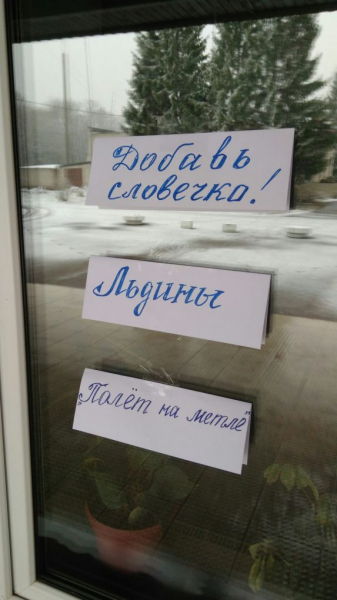 Добавь
словечко!
Льдины
„Полёт на метле"